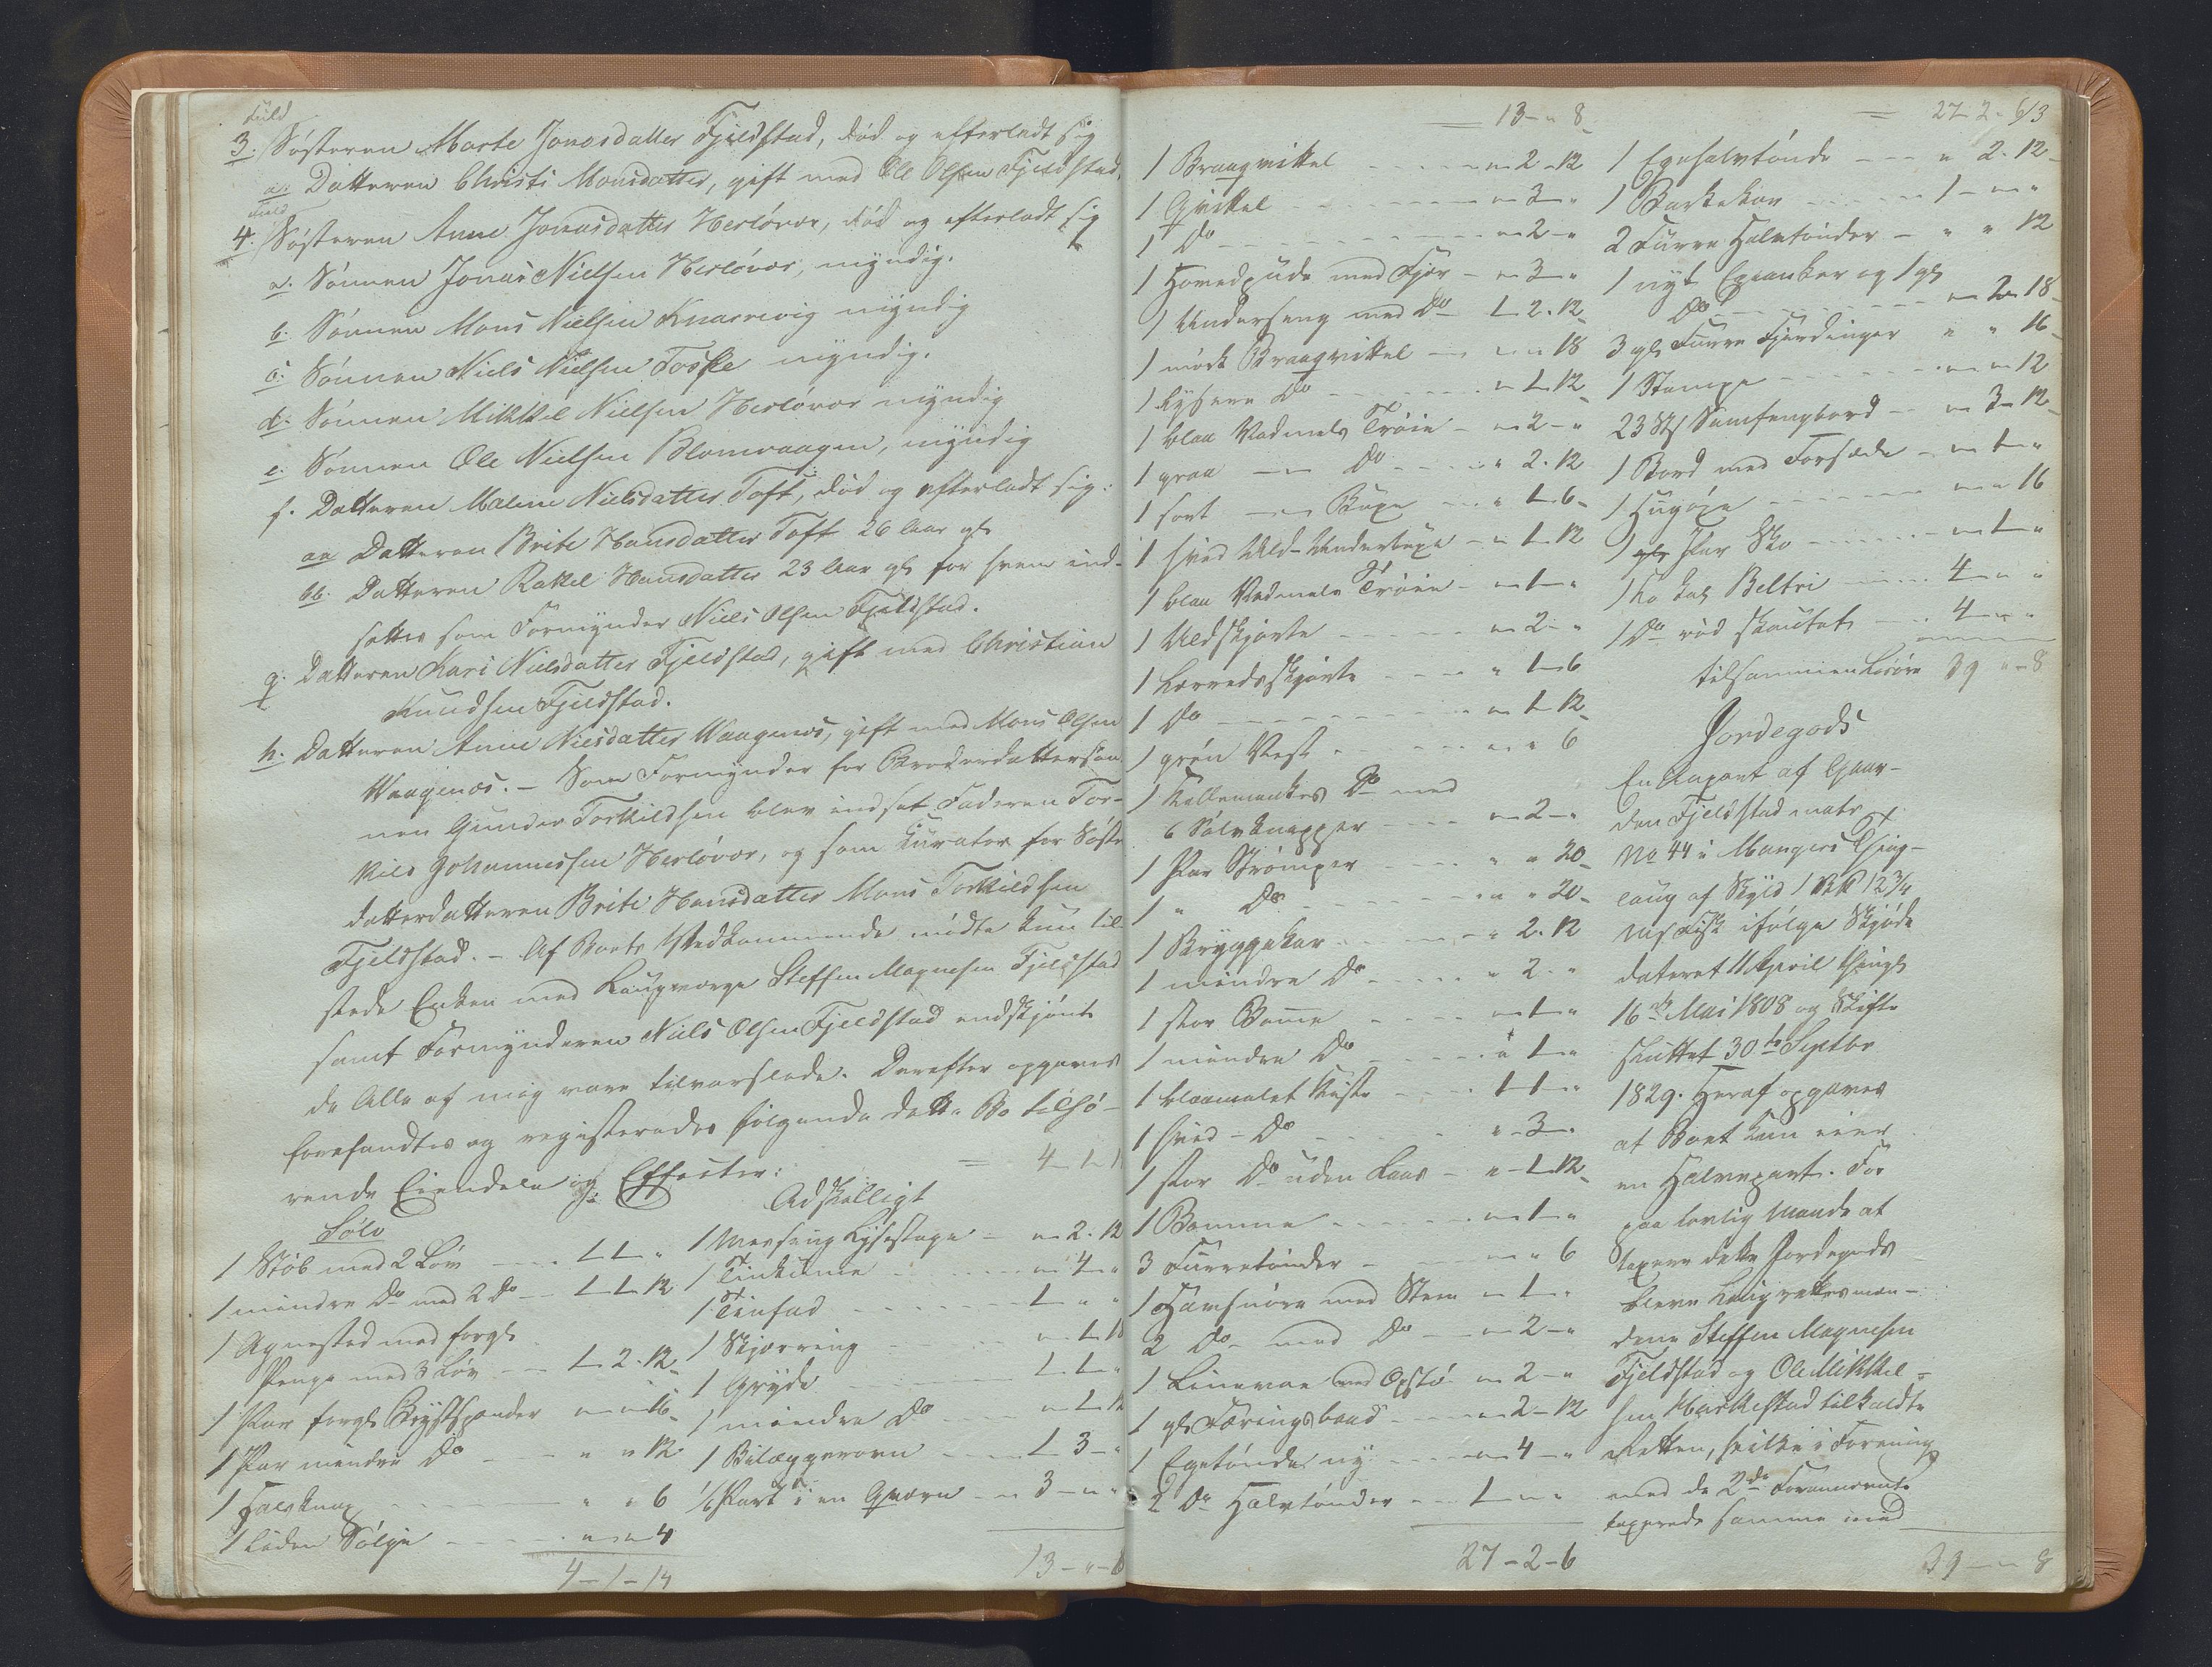 fuld
3. Søsteren Marte Jonasdatter Fjeldstad, død og efterladt sig
a. Datteren Christi Monsdatter, gift med Ole Olsen Fjeldstad.
fuld
4. Søsteren Anne Jonasdatter Herløvær, død og efterladt sig
a. Sønnen Jonas Nielsen Herløvær, myndig.
b. Sønnen Mons Nielsen Knarrevig myndig
c. Sønnen Niels Nielsen Toske myndig.
d. Sønnen Mikkel Nielsen Herløvær myndig
e. Sønnen Ole Nielsen Blomvaagen, myndig
f. Datteren Malene Nielsdatter Toft, død og efterladt sig:
aa Datteren Brite Hansdatter Toft 26 Aar gl
bb. Datteren Rakel Hansdatter 23 Aar gl for hvem ind-
sattes som Formynder Niels Olsen Fjeldstad.
g. Datteren Kari Nielsdatter Fjeldstad, gift med Christian
Knudsen Fjeldstad.
h. Datteren Anne Nielsdatter Vaagenæs, gift med Mons Olsen
Vaagenæs. – Som Formynder for Broderdattersøn-
nen Gunder Torkildsen blev indsat Faderen Tor-
kild Johannessen Herløvær, og som Kurator for Søster
datterdatteren Brite Hansdatter Mons Torkildsen
Fjeldstad. – Af Boets Vedkommende mødte kun til-
stede Enken med Laugværge Steffen Magnesen Fjeldstad
samt Formynderen Niels Olsen Fjeldstad endskjønt
de Alle af mig vare tilvarslede. Derefter opgaves
forefandtes og registeredes følgende dette Bo tilhø-
rende Eiendele og Effecter:
Sølv
1 Støb med 2 Løv - - - 1-1-"
1 mindre Do med 2 Do - - 1-1-12
1 Agnested med forgl
Penge med 3 Løv - - - 1-2-12
1 Par forgl Brystspender " " 16
1 Par mindre Do - - " " 12
1 Halsknap - - - " " 6
1 liden Sølje - - - " " 4
4-1-14
= 4-1-1
Adskilligt
1 Messing Lysestage - " 2-12
1 Tinkanne - - - " 4 "
1 Tinfad - - - 1 " "
1 Skjørring - - - " 1-18
1 Gryde - - - 1-1-"
1 mindre Do - - " 1-1
1 Bilæggerovn - - 1-3-"
1/6 Part i en Qværn - " 3-"-"
13-"-8
= 13-"-8
1 Braaqvittel - - - " 2-12
1 Qvittel - - - " 3-"
1 Do - - - " 2-"
1 Hovedpude med Fjær - " 3-"
1 Underseng med Do 1-2-12
1 mørk Braaqvittel - - " " 18
1 lysere Do - - - " 1-12
1 blaa Vadmels Trøie - " 2-"
1 graa — Do - - - " 2-12
1 sort — Buxe - - " 1-6
1 hvid Uld-Underbuxe - " 1-12
1 blaa Vadmels Trøie - " 1-"
1 Uldskjorte - - - " 2-"
1 Lærredsskjorte - - - " 1-6
1 Do - - - " 1-12
1 grøn Vest - - - " " 6
1 Kallemankes Do med
6 Sølvknapper - - " 2-"
1 Par Strømper - - - " " 20
1 " Do - - - " " 20
1 Bryggekar - - - " 2-12
1 mindre Do - - - " 2-"
1 stor Bomme - - - " 1-"
1 mindre Do - - - " 1-"
1 blaamalet Kiste - - 1-1-"
1 hvid - Do - - - " 3-"
1 stor Do uden Laas - " 1-12
1 Bomme - - - " 1-"
3 Furretønder - - - " " 6
1 Havsnøre med Steen - " 1-"
2 Do med Do - - " 2-"
1 Linevae med Opstø " 2-"
1 gl Færingsbaad - - " 2-12
1 Egetønde ny - - - " 4-"
2 Do Halvtønder - - - 1-"-"
27-2-6
= 27-2-6/3
1 Egehalvtønde - - " 2-12
1 Barkekar - - - 1-"-"
2 Furre Halvtønder - " " 12
1 nyt Egeanker og 1 gl
Do - - - " 2-18
3 gl Furre Fjerdinger " " 16
1 Stampe - - - " " 12
23 Stk Sumfengbord - - " 3-12
1 Bord med Forsæde - " 1-"
1 Hugøxe - - - " " 16
1 gl Par Sko - - - " 1-"
1 Ko kal Beltri - - - 4-"-"
1 Do rød skautet - - 4-"-"
tilsammen Løsøre 39-"-8
Jordegods
En Anpart af Gaar-
den Fjeldstad matr
No 44 i Mangers Thing-
laug af Skyld 1 BP 12 3/4
Mf Fisk ifølge Skjøde
dateret 11 April thingl
16de Mai 1808 og Skifte
sluttet 30te Septbr
1829. Heraf opgaves
at Boet kun eier
en Halvepart. For
paa lovlig Maade at
taxere dette Jordegods
bleve Laugrettesmæn-
dene Steffen Magnesen
Fjeldstad og Ole Mikkel-
sen Markestad tilkaldte
Retten, hvilke i Forening
med de 2de Forannævnte
taxerede samme med
39-"-8